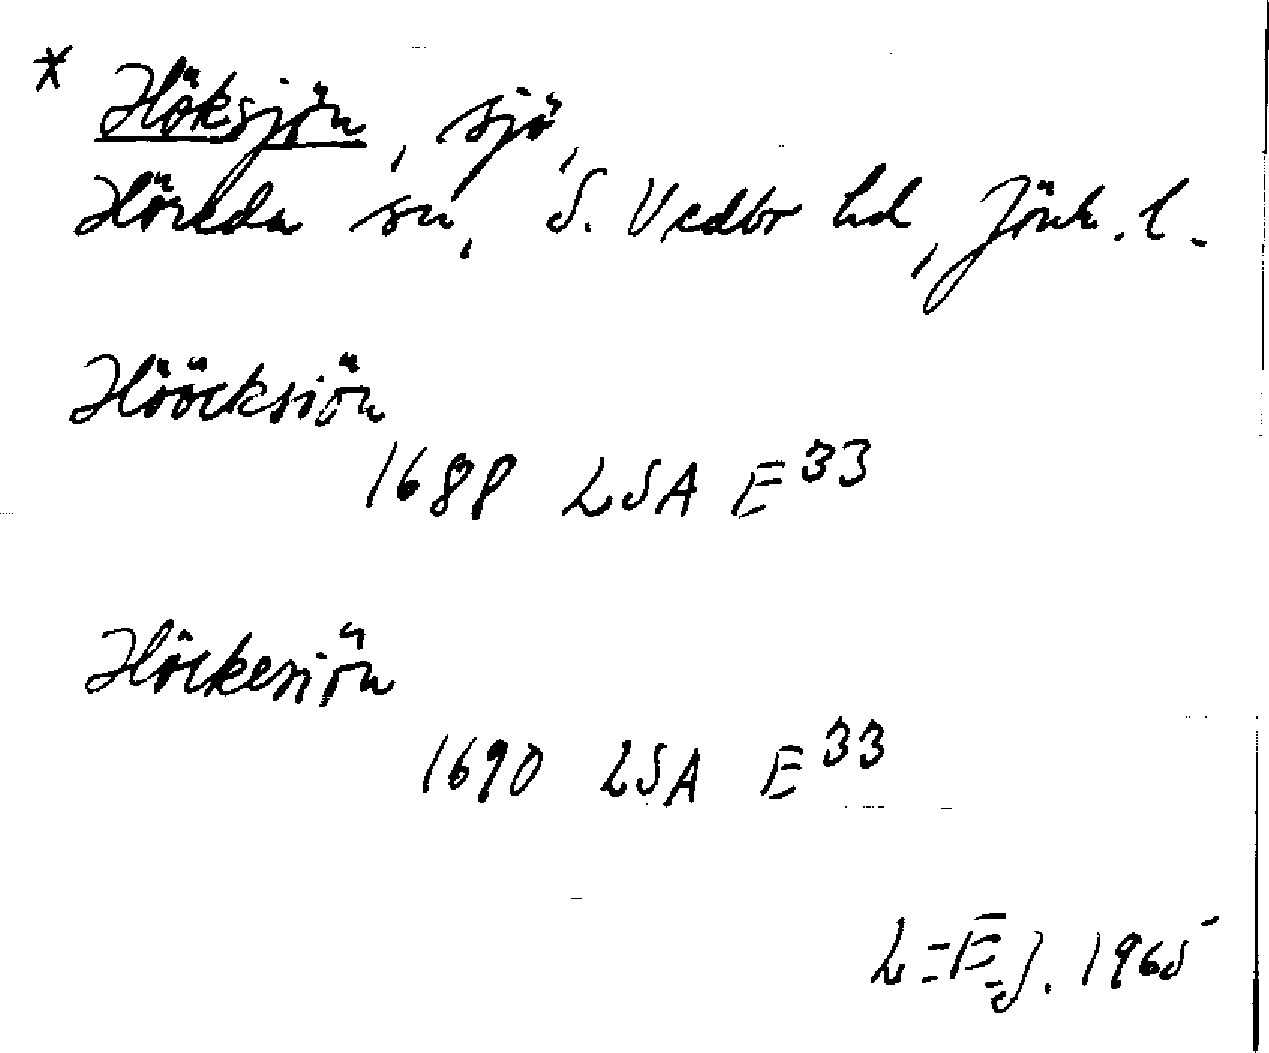 * Höksjön, sjö,
Höreda sn, S. Vedbo hd, Jönk. l.
Höӧcksiön
1688 LSA E 33
Höckesiön
1690 LSA E 33
L-E J. 1965